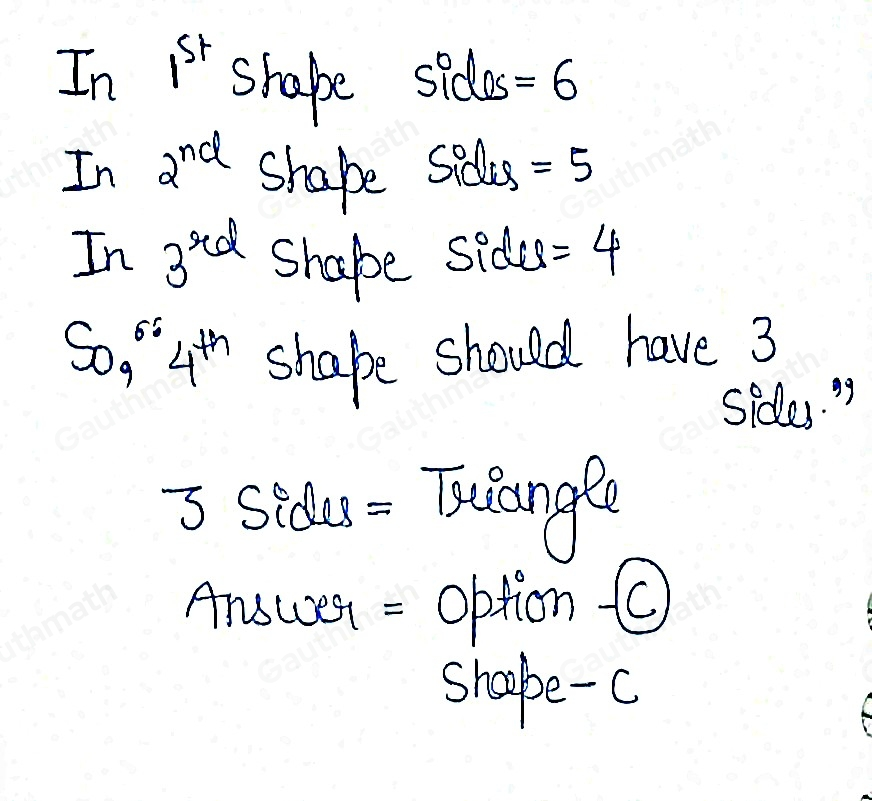 In 1st shape sides = 6
In 2nd shape sides = 5
In 3rd shape sides = 4
So, "4th shape should have 3
sides."
3 sides = Triangle
Answer = Option - C
Shape - C